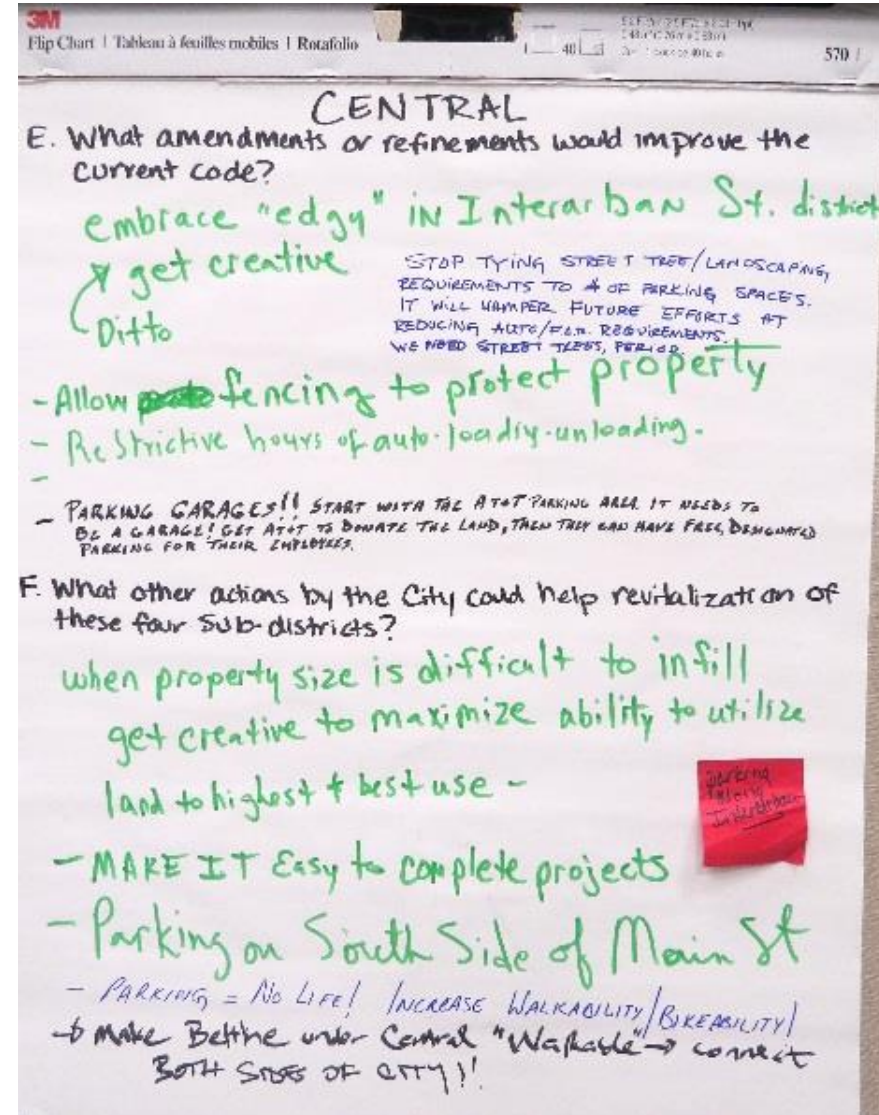 3M
Flip Chart | Tableau à feuilles mobiles | Rotafolio
40
570
CENTRAL
E. What amendments or refinements would improve the
current code?
embrace "edgy" in Interarban St. district
get creative
Ditto
STOP TYING STREET TREE/LANDSCAPING
REQUIREMENTS TO # OF PARKING SPACES.
IT WILL HAMPER FUTURE EFFORTS AT
REDUCING AUTO/ REQUIREMENTS.
WE NEED STREET TREES, PERIOD.
- Allow fencing to protect property
- Restrictive hours of auto-loadiy-unloading.
-
- PARKING GARAGES!! START WITH THE AT&T PARKING AREA. IT NEEDS TO
BE A GARAGE! GET AT&T TO DONATE THE LAND, THEN THEY CAN HAVE FREE, DESIGNATED
PARKING FOR THEIR EMPLOYEES.
F. What other actions by the City could help revitalization of
these four sub-districts?
when property size is difficult to infill
get creative to maximize ability to utilize
land to highest & best use -
parking
along
Interurban
- MAKE IT Easy to complete projects
- Parking on South Side of Main St
- PARKING = NO LIFE! INCREASE WALKABILITY/BIKEABILITY!
→ Make Beltline under Central "Walkable" → connect
BOTH SIDES OF CITY!!